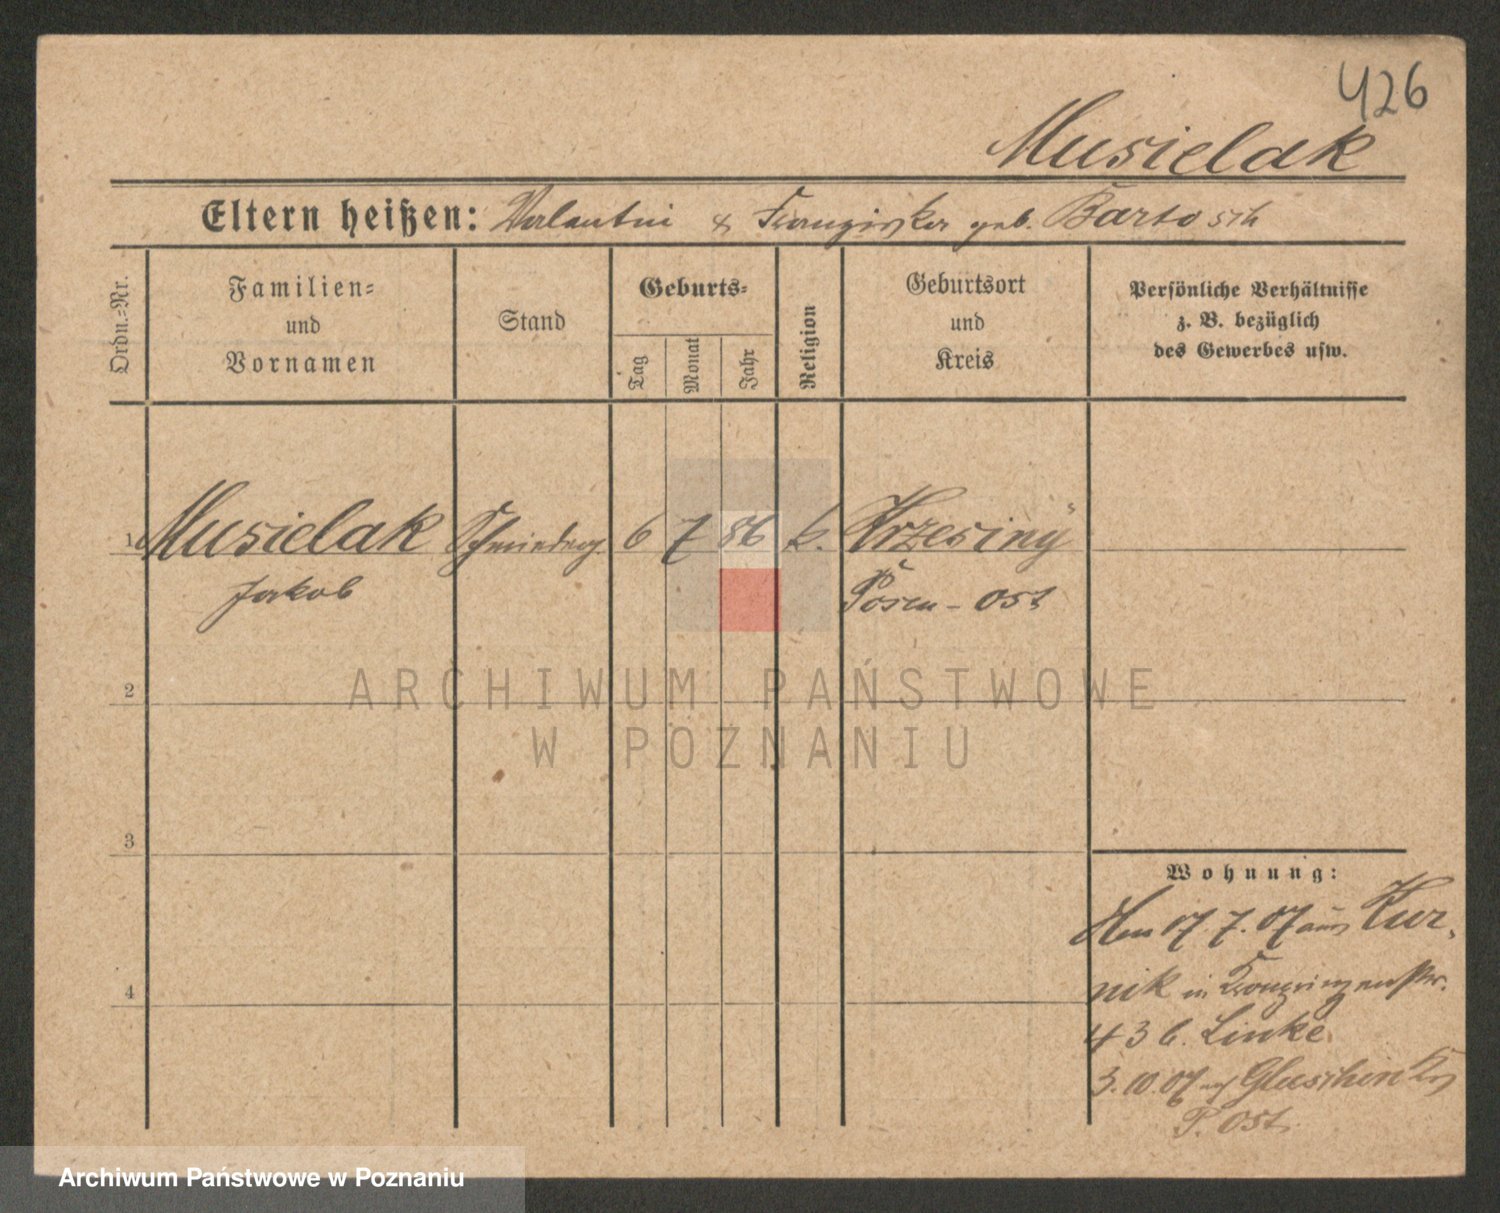 426
Musielak
Eltern heißen: Valentin & Franziska geb. Bartosch
Ordn.=Nr.
Familien=
und
Vornamen
Stand
Geburts=
Tag
Monat
Jahr
Religion
Geburtsort
und
Kreis
Persönliche Verhältnisse
z. B. bezüglich
des Gewerbes usw.
1 Musielak 6 7 86 k. Krzesiny
Jakob Posen - Ost
2
3
4
Wohnung:
17. 7. 07 aus Kur-
nik in Kronprinzenstr.
43 b. Linke
3. 10. 07
P. Ost.
ARCHIWUM PAŃSTWOWE
W POZNANIU
Archiwum Państwowe w Poznaniu